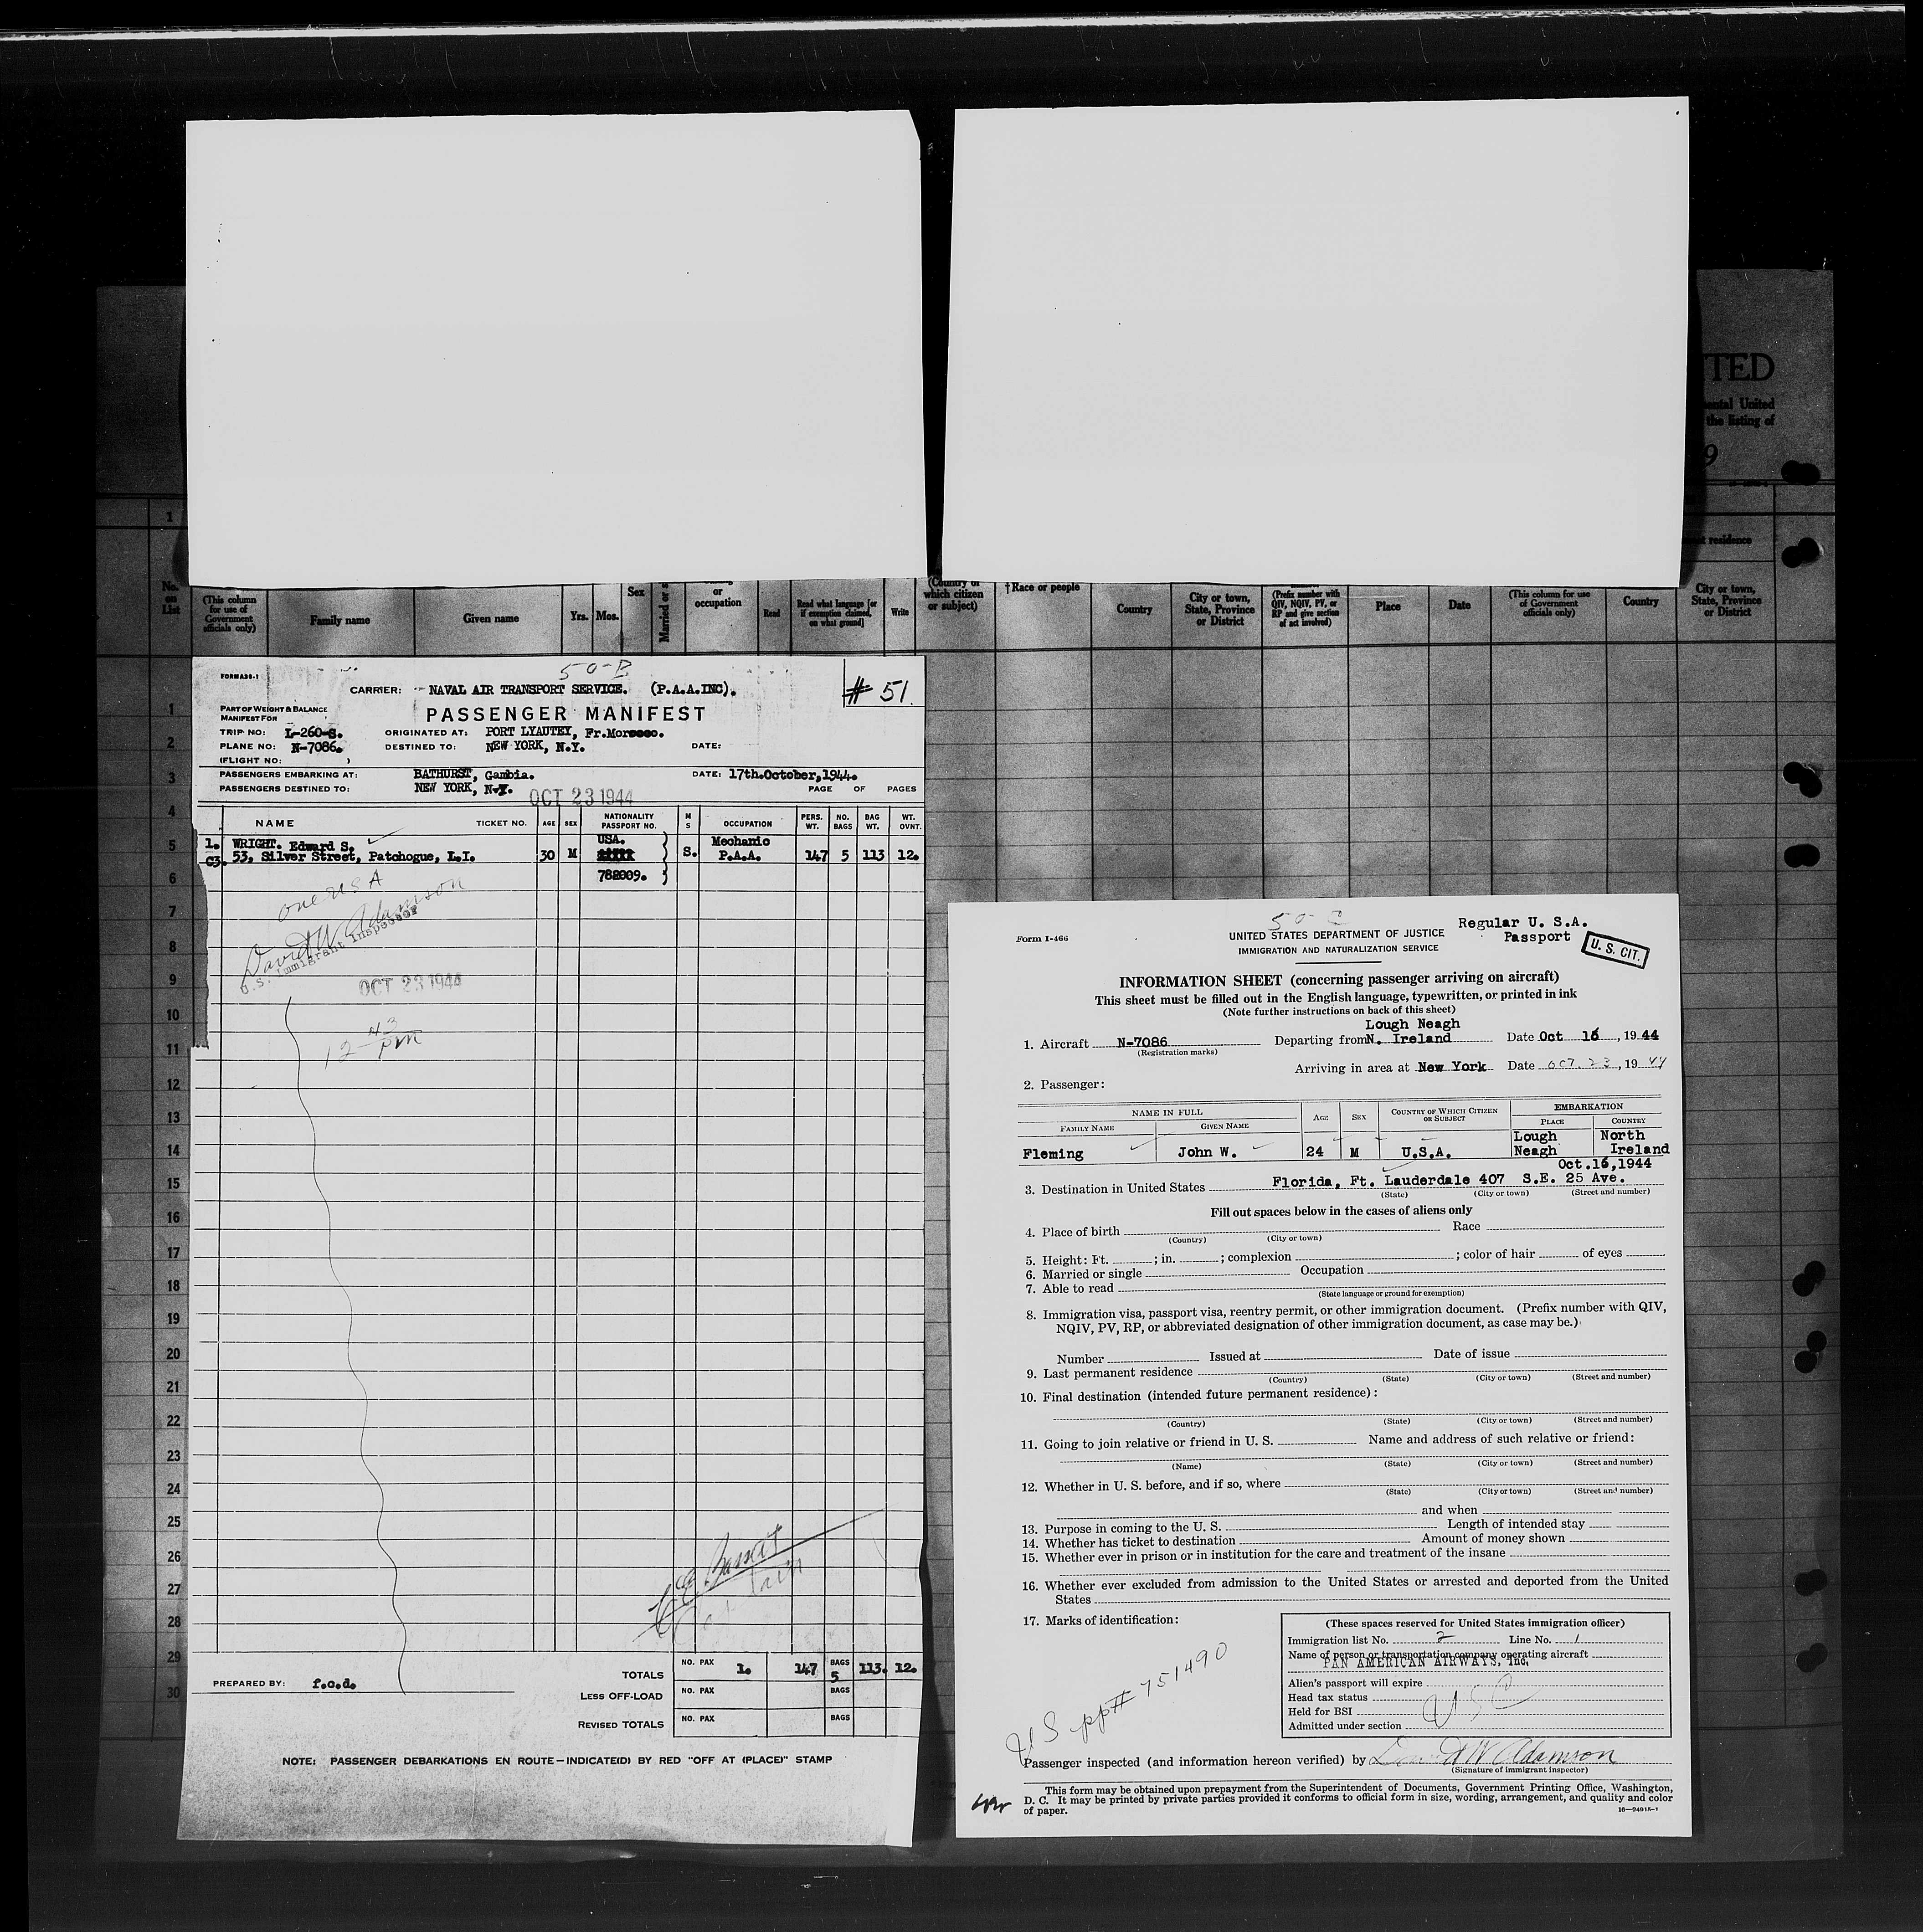 TED
ental United
the listing of
9
1
t residence
No.
on
List
(This column
for use of
Government
officials only)
Family name
Given name
Yrs.
Mos.
Sex
Married or s
or
occupation
Read
Read what language [or
if exemption claimed,
on what ground]
Write
(Country of
which citizen
or subject)
†Race or people
Country
City or town,
State, Province
or District
(Prefix number with
QIV, NQIV, PV, or
RP and give section
of act involved)
Place
Date
(This column for use
of Government
officials only)
Country
City or town,
State, Province
or District
1
2
3
4
5
6
7
8
9
10
11
12
13
14
15
16
17
18
19
20
21
22
23
24
25
26
27
28
29
30
FORM A36-1
50-B
CARRIER: NAVAL AIR TRANSPORT SERVICE. (P.A.A.INC).
# 51.
PART OF WEIGHT & BALANCE
MANIFEST FOR
PASSENGER MANIFEST
TRIP NO: L-260-S. ORIGINATED AT: PORT LYAUTEY, Fr.Morocco.
PLANE NO: N-7086. DESTINED TO: NEW YORK, N.Y. DATE:
(FLIGHT NO: )
PASSENGERS EMBARKING AT: BATHURST, Gambia. DATE: 17th.October,1944.
PASSENGERS DESTINED TO: NEW YORK, N.Y. PAGE OF PAGES
OCT 23 1944
NAME TICKET NO. AGE SEX NATIONALITY PASSPORT NO. M S OCCUPATION PERS. WT. NO. BAGS BAG WT. WT. OVNT.
1. WRIGHT. Edward S. USA. Mechanic
C3. 53, Silver Street, Patchogue, L.I. 30 M S. P.A.A. 147 5 113 12.
782009.
one USA
David W Adamson
U.S. Immigrant Inspector
OCT 23 1944
12 43 pm
Captain
TOTALS NO. PAX 1. 147 BAGS 5 113. 12.
PREPARED BY: f.c.d.
LESS OFF-LOAD NO. PAX BAGS
REVISED TOTALS NO. PAX BAGS
NOTE: PASSENGER DEBARKATIONS EN ROUTE—INDICATE(D) BY RED "OFF AT (PLACE)" STAMP
50-C
Form I-466
UNITED STATES DEPARTMENT OF JUSTICE
IMMIGRATION AND NATURALIZATION SERVICE
Regular U. S.A.
Passport
U. S. CIT.
INFORMATION SHEET (concerning passenger arriving on aircraft)
This sheet must be filled out in the English language, typewritten, or printed in ink
(Note further instructions on back of this sheet)
Lough Neagh
1. Aircraft N-7086 Departing from N. Ireland Date Oct 16, 1944
(Registration marks)
Arriving in area at New York Date OCT. 23, 1944
2. Passenger:
NAME IN FULL AGE SEX COUNTRY OF WHICH CITIZEN OR SUBJECT EMBARKATION
FAMILY NAME GIVEN NAME PLACE COUNTRY
Lough North
Fleming John W. 24 M U.S.A. Neagh Ireland
Oct.16,1944
3. Destination in United States Florida, Ft. Lauderdale 407 S.E. 25 Ave.
(State) (City or town) (Street and number)
Fill out spaces below in the cases of aliens only
4. Place of birth Race
(Country) (City or town)
5. Height: Ft. ; in. ; complexion ; color of hair of eyes
6. Married or single Occupation
7. Able to read
(State language or ground for exemption)
8. Immigration visa, passport visa, reentry permit, or other immigration document. (Prefix number with QIV,
NQIV, PV, RP, or abbreviated designation of other immigration document, as case may be.)
Number Issued at Date of issue
9. Last permanent residence
(Country) (State) (City or town) (Street and number)
10. Final destination (intended future permanent residence):
(Country) (State) (City or town) (Street and number)
11. Going to join relative or friend in U. S. Name and address of such relative or friend:
(Name) (State) (City or town) (Street and number)
12. Whether in U. S. before, and if so, where
(State) (City or town) (Street and number)
and when
13. Purpose in coming to the U. S. Length of intended stay
14. Whether has ticket to destination Amount of money shown
15. Whether ever in prison or in institution for the care and treatment of the insane
16. Whether ever excluded from admission to the United States or arrested and deported from the United
States
17. Marks of identification:
(These spaces reserved for United States immigration officer)
Immigration list No. 2 Line No. 1
Name of person or transportation company operating aircraft
PAN AMERICAN AIRWAYS, Inc.
Alien's passport will expire
Head tax status
Held for BSI
Admitted under section
USC
US pp# 751490
Passenger inspected (and information hereon verified) by David W Adamson
(Signature of immigrant inspector)
This form may be obtained upon prepayment from the Superintendent of Documents, Government Printing Office, Washington,
D. C. It may be printed by private parties provided it conforms to official form in size, wording, arrangement, and quality and color
of paper.
16—24915-1